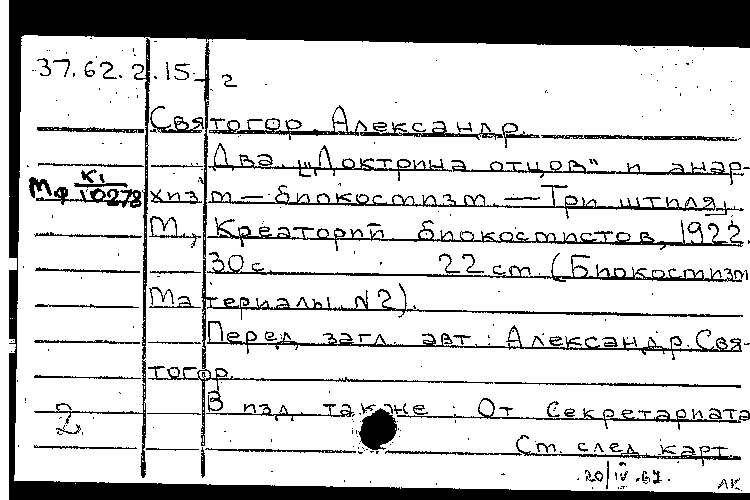 37.62.2.15- 2
Святогор, Александр.
Два. „Доктрина отцов" и анар-
Мф К1/10278 хизм — биокосмизм. — Три штиля,
М., Креаторий биокосмистов, 1922.
30 с. 22 см. (Биокосмизм
Материалы №2).
Перед загл. авт.: Александр Свя-
тогор.
В изд. также: От Секретариата
2
См. след. карт.
20/IV.67.
ЛК